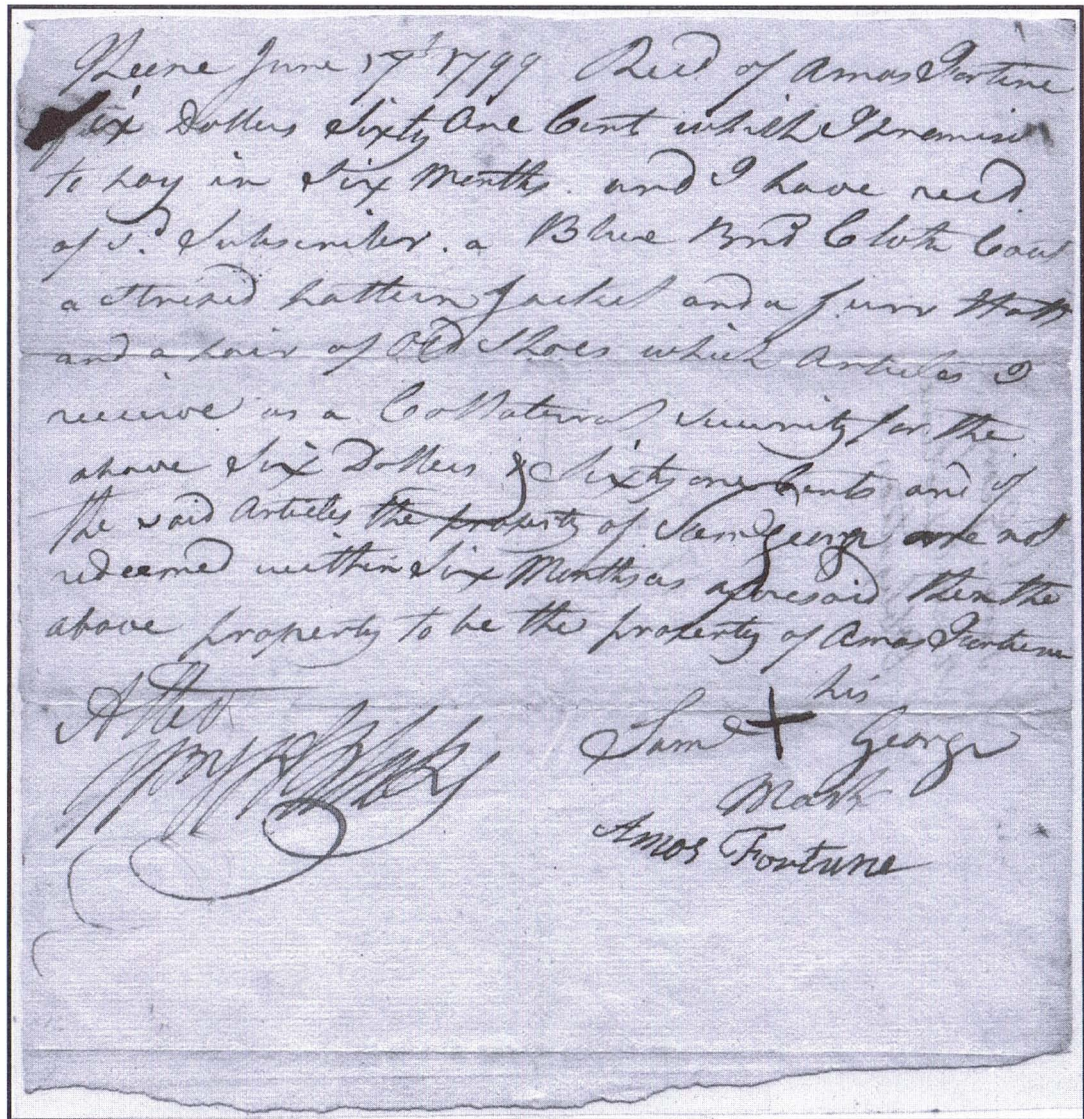 Keene June 17th 1799 Recd of Amos Fortune
Six Dollers Sixty One Cent which I promise
to pay in Six Months. and I have recd
of sd. Subscriber. a Blue Brd Cloth Coat
a Striped pattern Jacket and a furr Hatt
and a pair of Old Shoes which Articles I
receive as a Collateral security for the
above Six Dollers & Sixty one Cents and if
the said Articles the property of Sam George are not
redeemed within Six Months as aforesaid then the
above property to be the property of Amos Fortune
Attest
his
Sam + George
Mark
Amos Fortune